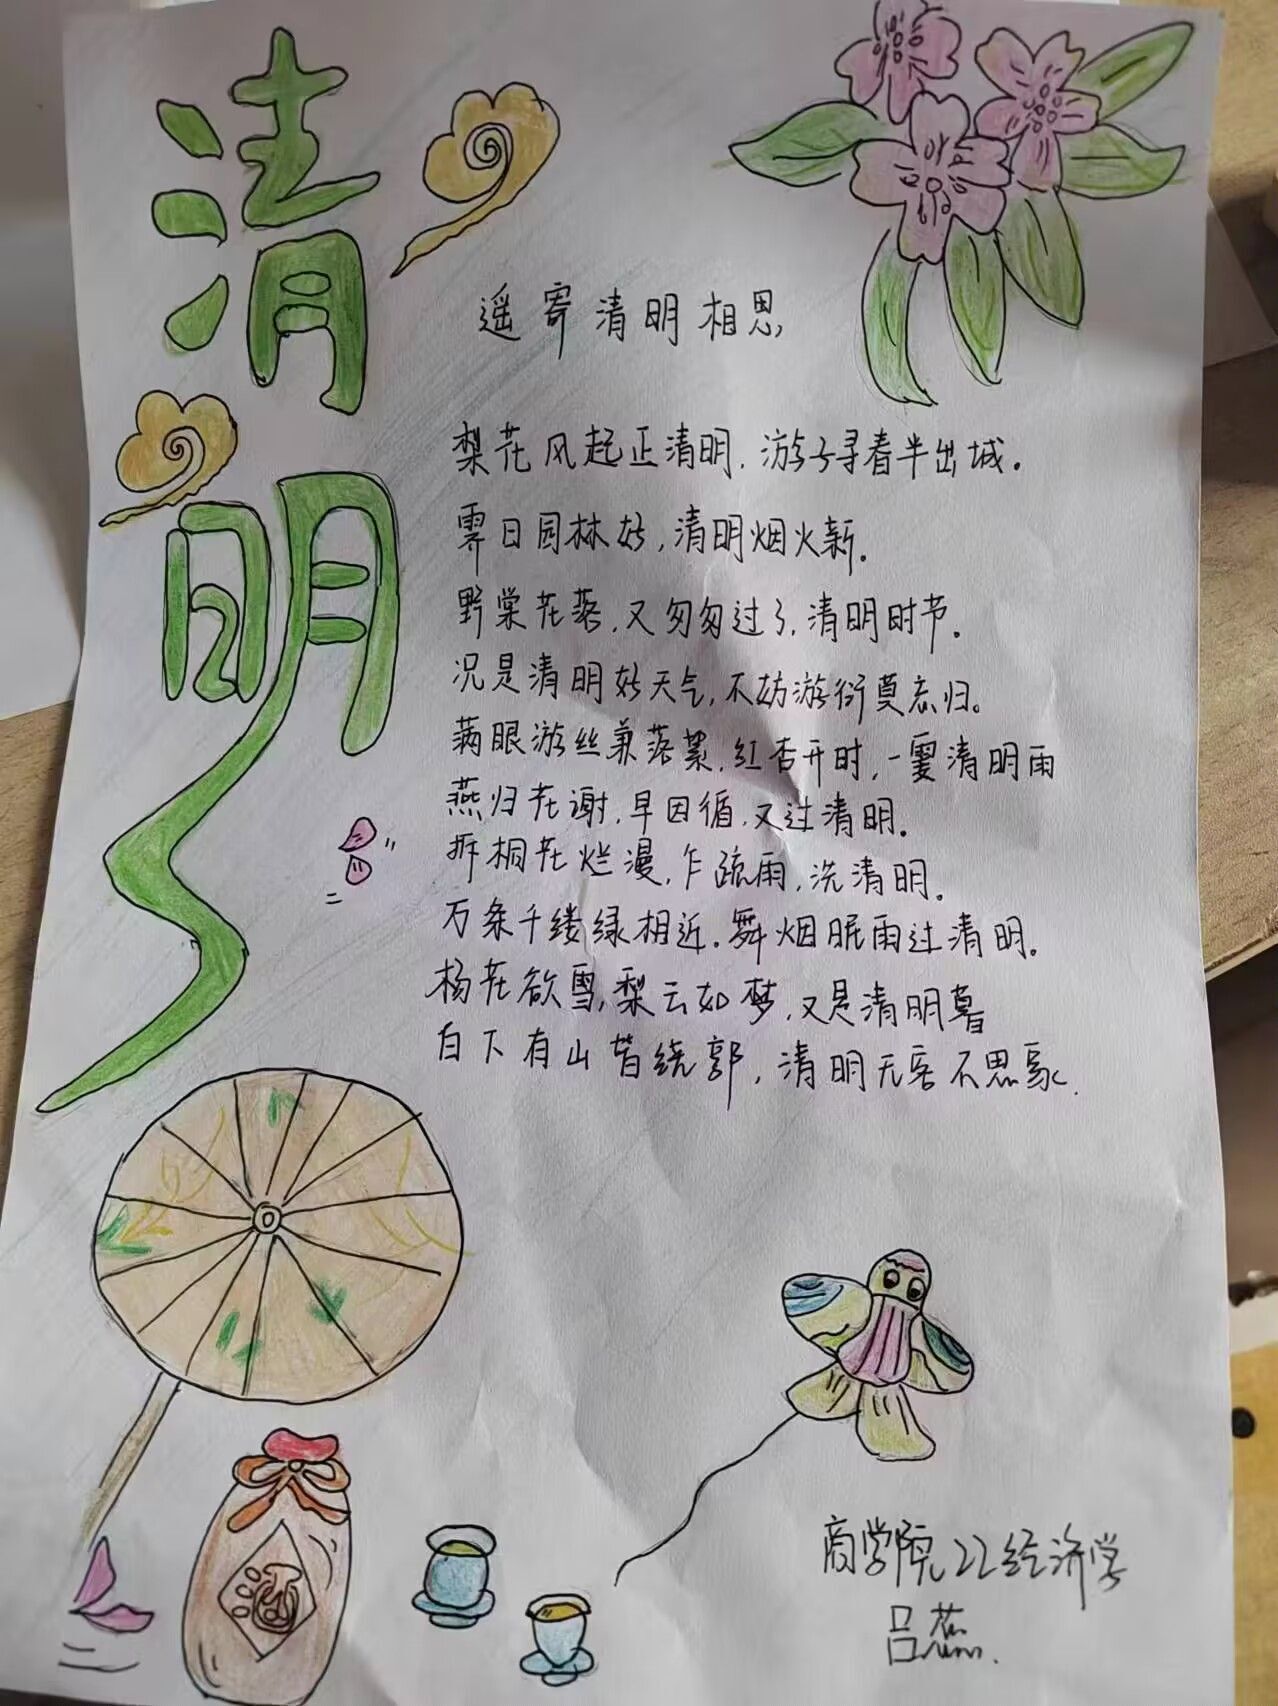 清明
遥寄清明相思
梨花风起正清明,游子寻春半出城。
霁日园林好,清明烟火新。
野棠花落,又匆匆过了,清明时节。
况是清明好天气,不妨游衍莫忘归。
满眼游丝兼落絮,红杏开时,一霎清明雨
燕归花谢,早因循,又过清明。
拆桐花烂漫,乍疏雨,洗清明。
万条千缕绿相近。舞烟眠雨过清明。
杨花欲雪,梨云如梦,又是清明暮
白下有山皆绕郭,清明无客不思家.
酒
商学院22经济学
吕蕊.